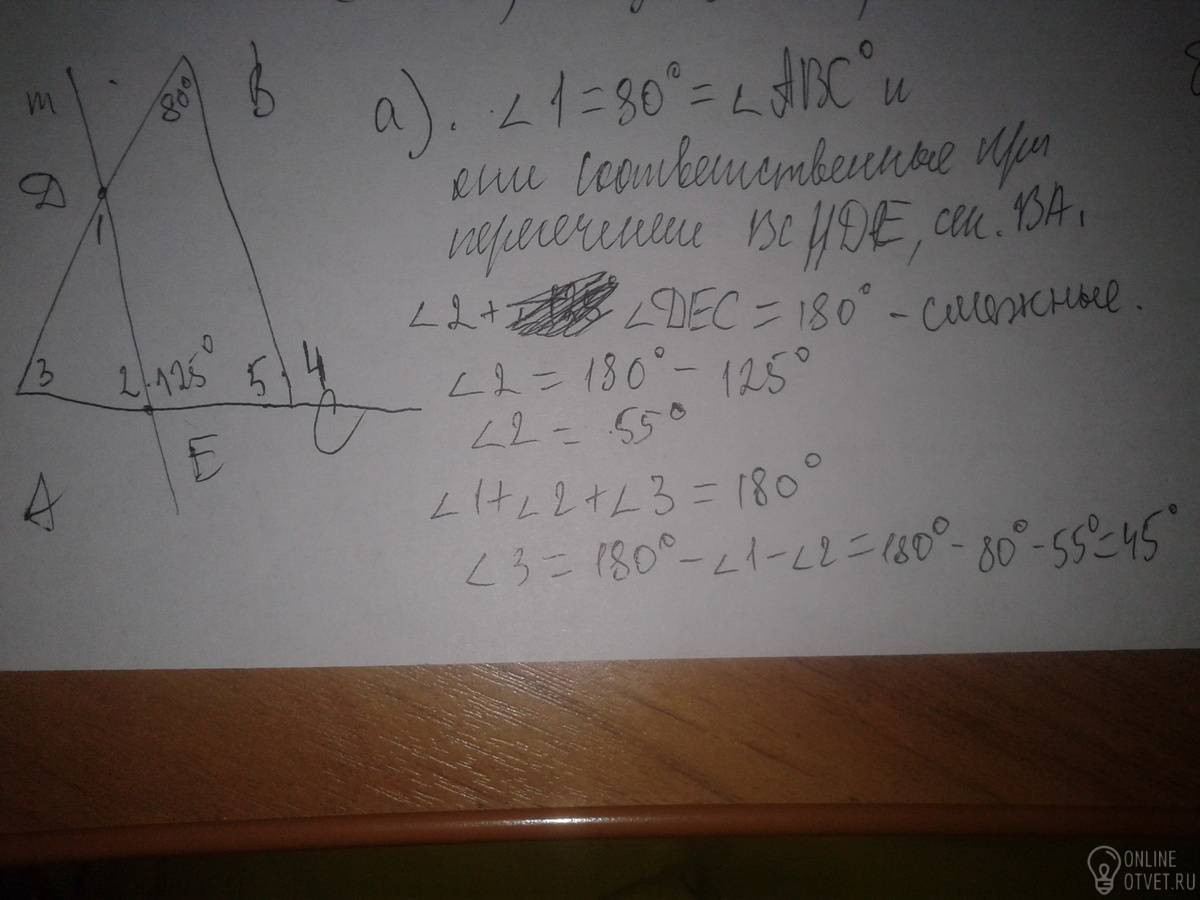 m
80°
B
D
1
3
2
125°
5
4
E
A
C
а). ∠1=80°=∠ABC° и
они соответственные при
пересечении BC||DE, сек. BA.
∠2+ ∠DEC=180° - смежные.
∠2=180°-125°
∠2=55°
∠1+∠2+∠3=180°
∠3=180°-∠1-∠2=180°-80°-55°=45°
ONLINE
OTVET.RU